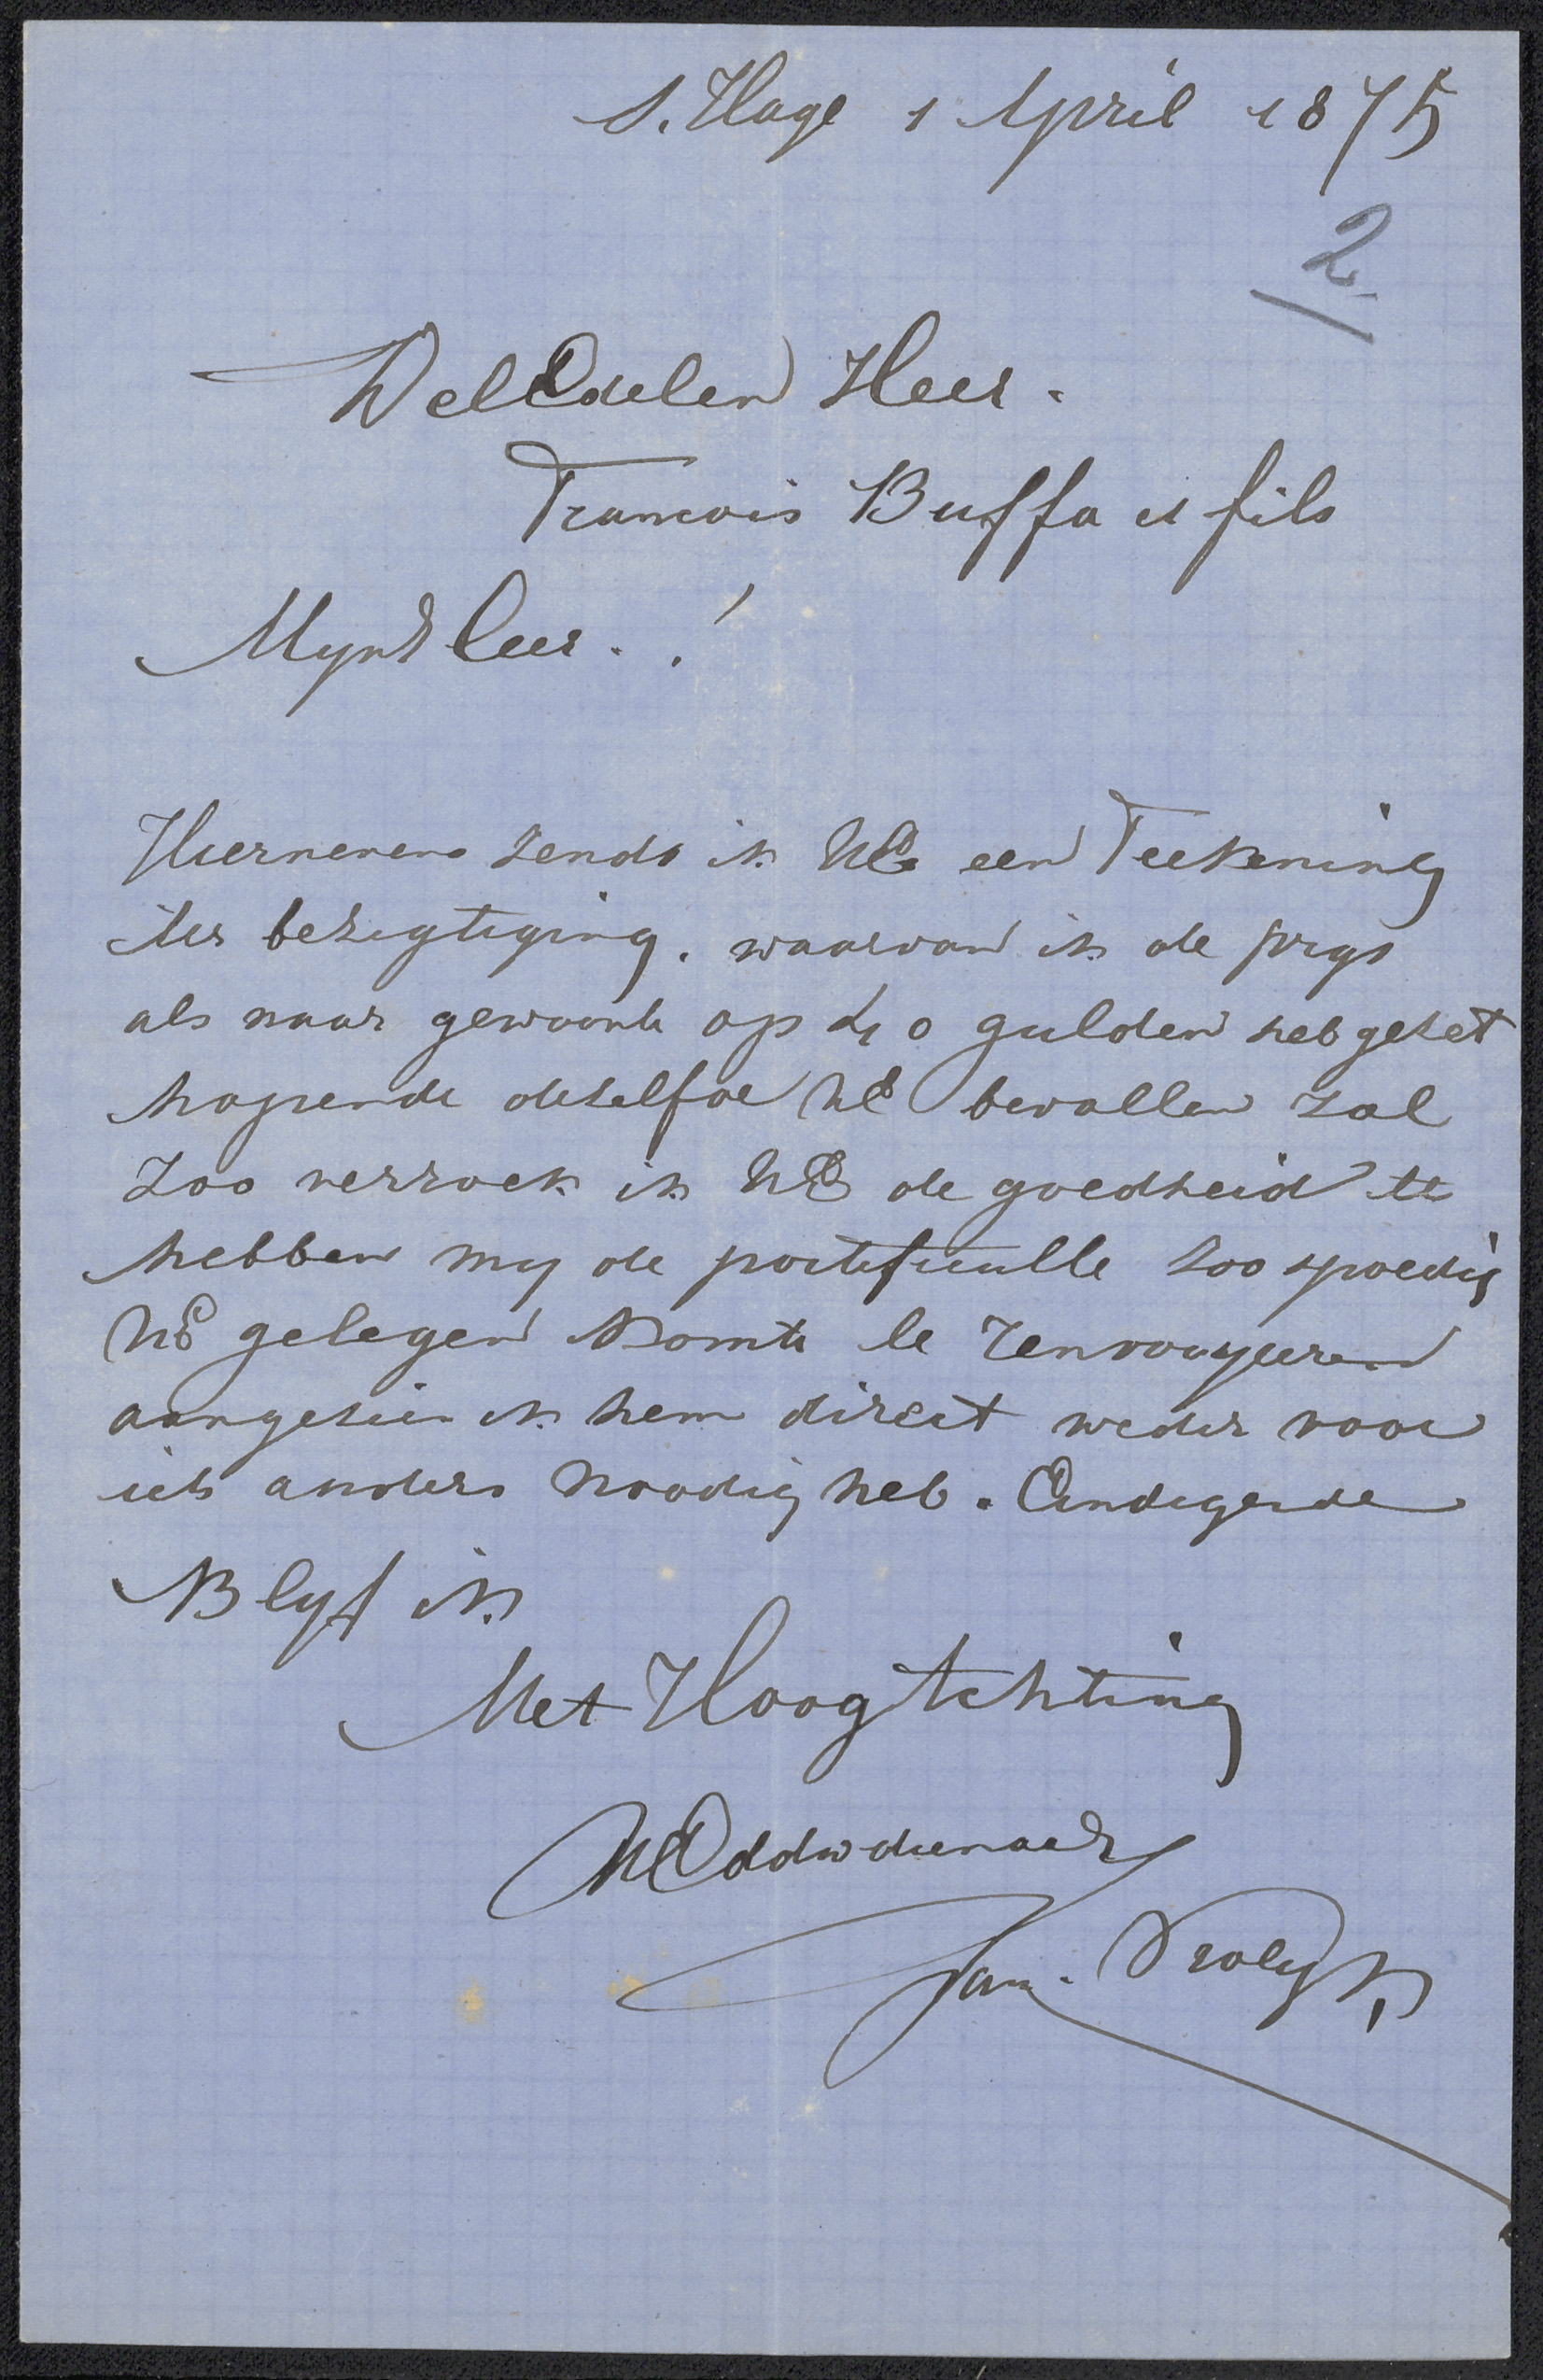 s.Hage 1 April 1875
2.
WelEdelen Heer.
Francois Buffa et fils
MynHeer.!
Hiernevens zende ik UE een Teekening
ter bezigtiging. waarvan ik de prys
als naar gewoonte op 40 gulden heb gezet
hopende dezelfde UE bevallen zal
Zoo verzoek ik UE de goedheid te
hebben my de portefeuille zoo spoedig
UE gelegen komt te renvoyeeren
aangezien ik hem direct weder voor
iets anders noodig heb. Eindigende
Blyf ik
Met Hoogachting
UEddwdienaar
Jan. Vrolyk